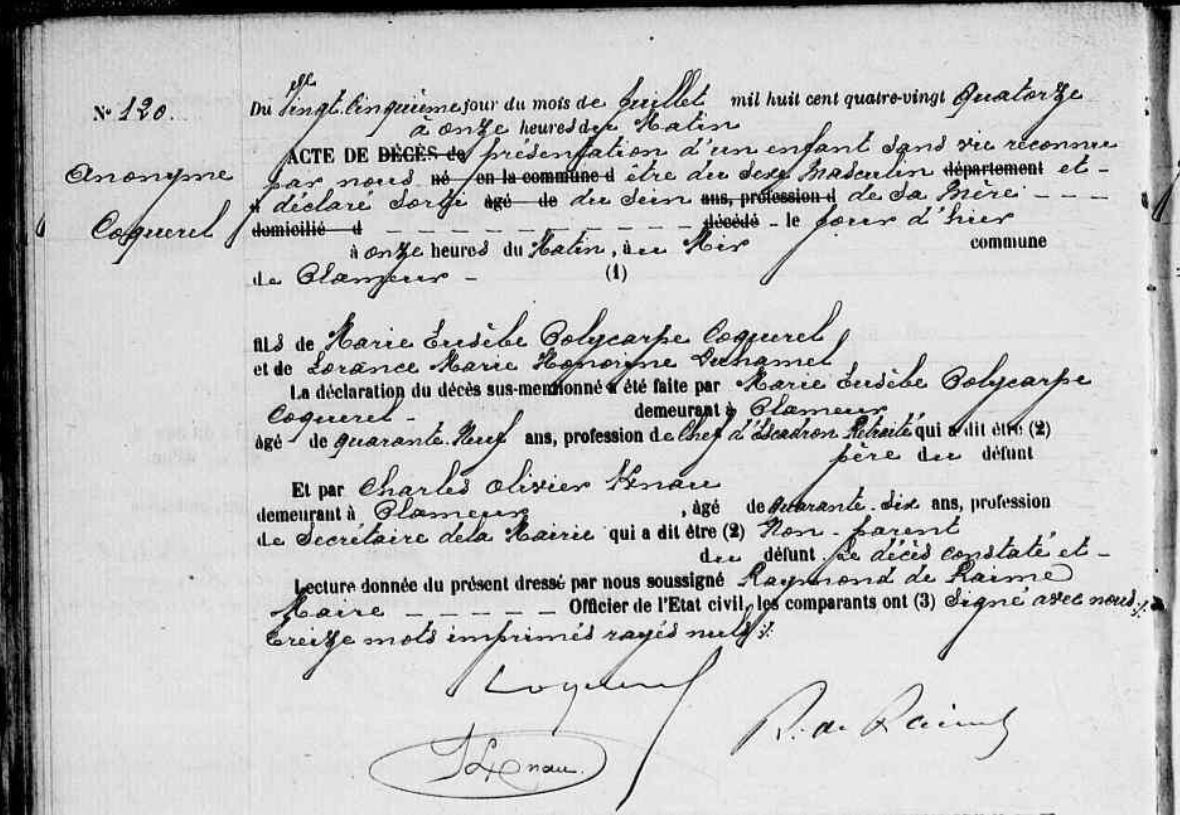 N° 120.
Anonyme
Coquerel
Du Vingt-Cinquième jour du mois de Juillet mil huit cent quatre-vingt Quatorze
à onze heures du Matin
ACTE DE DÉCÈS de présentation d'un enfant sans vie reconnu
par nous né en la commune d être du Sexe Masculin département et -
d déclaré Sorti âgé de du Sein ans, profession d de Sa Mère - - -
domicilié d - - - - - - - - - - - - décédé - le jour d'hier
à onze heures du Matin, au Mir commune
de Plameur - (1)
fils de Marie Eusèbe Polycarpe Coquerel
et de Lorance Marie Honorine Duhamel
La déclaration du décès sus-mentionné a été faite par Marie Eusèbe Polycarpe
Coquerel - demeurant à Plameur
âgé de quarante-Neuf ans, profession de Chef d'Escadron Retraité qui a dit être (2)
père du défunt
Et par Charles Olivier
demeurant à Plameur, âgé de quarante-Six ans, profession
de Secrétaire de la Mairie qui a dit être (2) Non-parent
du défunt. Le décès constaté et -
Lecture donnée du présent dressé par nous soussigné Raymond de Raime
Maire - - - - - Officier de l'Etat civil, les comparants ont (3) Signé avec nous ./.
Treize mots imprimés rayés nuls ./.
Coquerel
R. de Raime